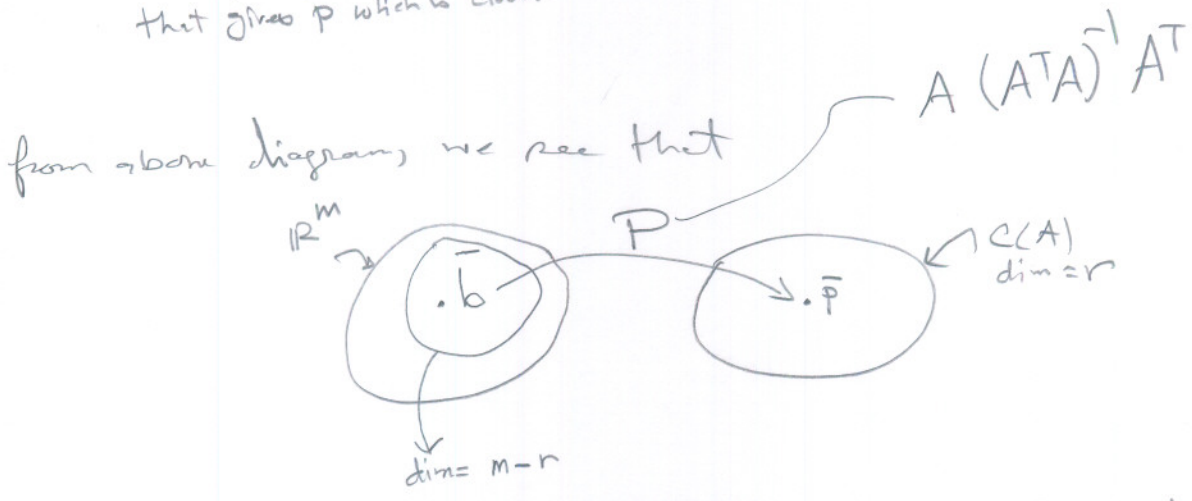 that gives p which is
A (AᵀA)⁻¹ Aᵀ
from above diagram, we see that
P
ℝᵐ
C(A)
dim = r
. b̄
. p̄
dim = m - r